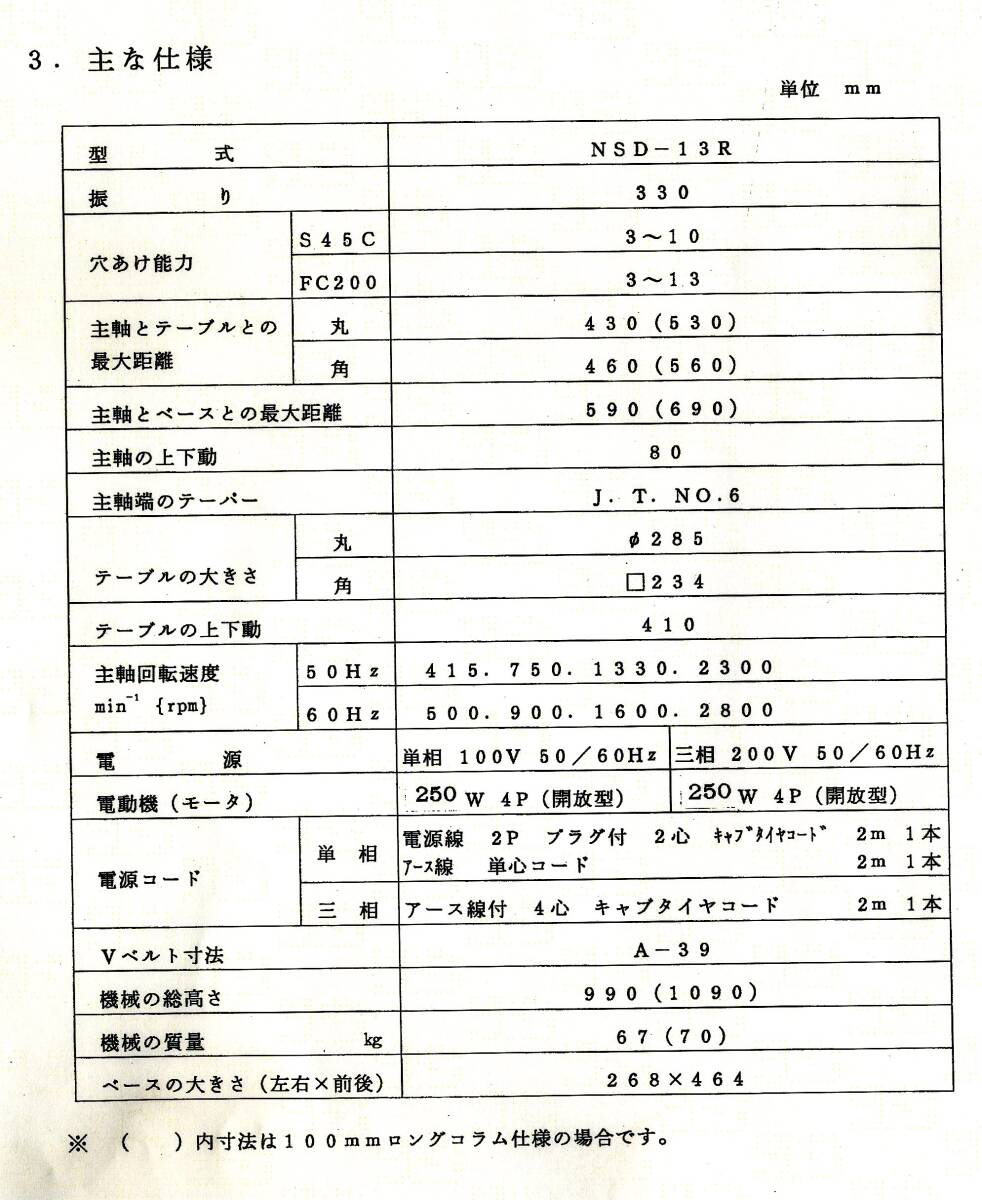 ３．主な仕様
単位　ｍｍ
型　式　ＮＳＤ－１３Ｒ
振　り　３３０
穴あけ能力　Ｓ４５Ｃ　３～１０
FC200　３～１３
主軸とテーブルとの最大距離　丸　４３０(５３０)
角　４６０(５６０)
主軸とベースとの最大距離　５９０(６９０)
主軸の上下動　８０
主軸端のテーパー　Ｊ．Ｔ．ＮＯ.６
テーブルの大きさ　丸　φ２８５
角　□２３４
テーブルの上下動　４１０
主軸回転速度 min⁻¹ {rpm}　５０Ｈｚ　４１５．７５０．１３３０．２３００
６０Ｈｚ　５００．９００．１６００．２８００
電　源　単相 100V 50／60Hz　三相 200V 50／60Hz
電動機(モータ)　250W 4P(開放型)　250W 4P(開放型)
電源コード　単　相　電源線　2P　プラグ付　2心　ｷｬﾌﾞﾀｲﾔｺｰﾄﾞ　2m 1本
ｱｰｽ線　単心コード　2m 1本
三　相　アース線付　4心　キャブタイヤコード　2m 1本
Ｖベルト寸法　Ａ－３９
機械の総高さ　９９０(１０９０)
機械の質量　kg　６７(７０)
ベースの大きさ(左右×前後)　２６８×４６４
※　(　　)内寸法は１００ｍｍロングコラム仕様の場合です。